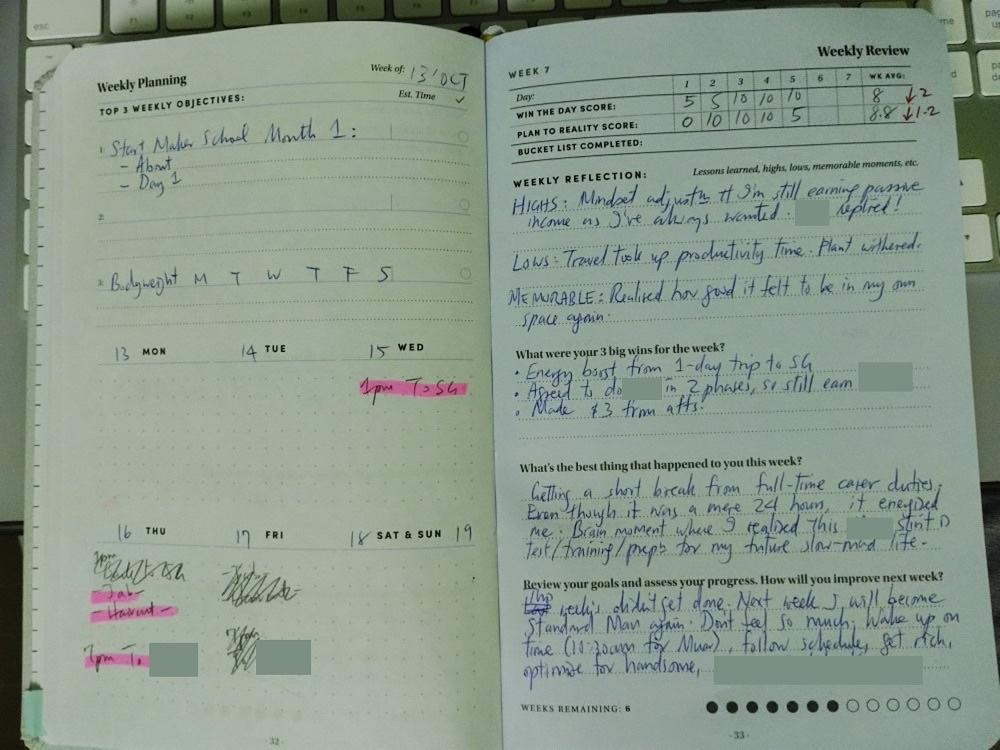 Weekly Planning
Week of: 13 / OCT
TOP 3 WEEKLY OBJECTIVES:
Est. Time ✓
1. Start Maker School Month 1:
- About
- Day 1
2.
3. Bodyweight M T W T F S
13 MON
14 TUE
15 WED
1pm To SG
16 THU
17 FRI
18 SAT & SUN 19
- Jab -
- Haircut -
7pm To
32
WEEK 7
Weekly Review
Day: 1 2 3 4 5 6 7 WK AVG:
WIN THE DAY SCORE: 5 5 10 10 10 8 ↓2
PLAN TO REALITY SCORE: 0 10 10 10 5 8.8 ↓1.2
BUCKET LIST COMPLETED:
WEEKLY REFLECTION: Lessons learned, highs, lows, memorable moments, etc.
HIGHS: Mindset I'm still earning passive
income as I've always wanted. replied!
LOWS: Travel took up productivity time. Plant withered.
MEMORABLE: Realised how good it felt to be in my own
space again.
What were your 3 big wins for the week?
• Energy boost from 1-day trip to SG
• Agreed to do in 2 phases, so still earn
• Made $3 from affs.
What's the best thing that happened to you this week?
Getting a short break from full-time carer duties.
Even though it was a mere 24 hours, it energized
me. Brain moment where I realized this stint is
test/training/prep for my future slow-mad life.
Review your goals and assess your progress. How will you improve next week?
This week's didn't get done. Next week I will become
Standard Man again. Dont feel so much; Wake up on
time (10:30am for Muar), follow schedule, get rich,
optimize for handsome,
WEEKS REMAINING: 6
33